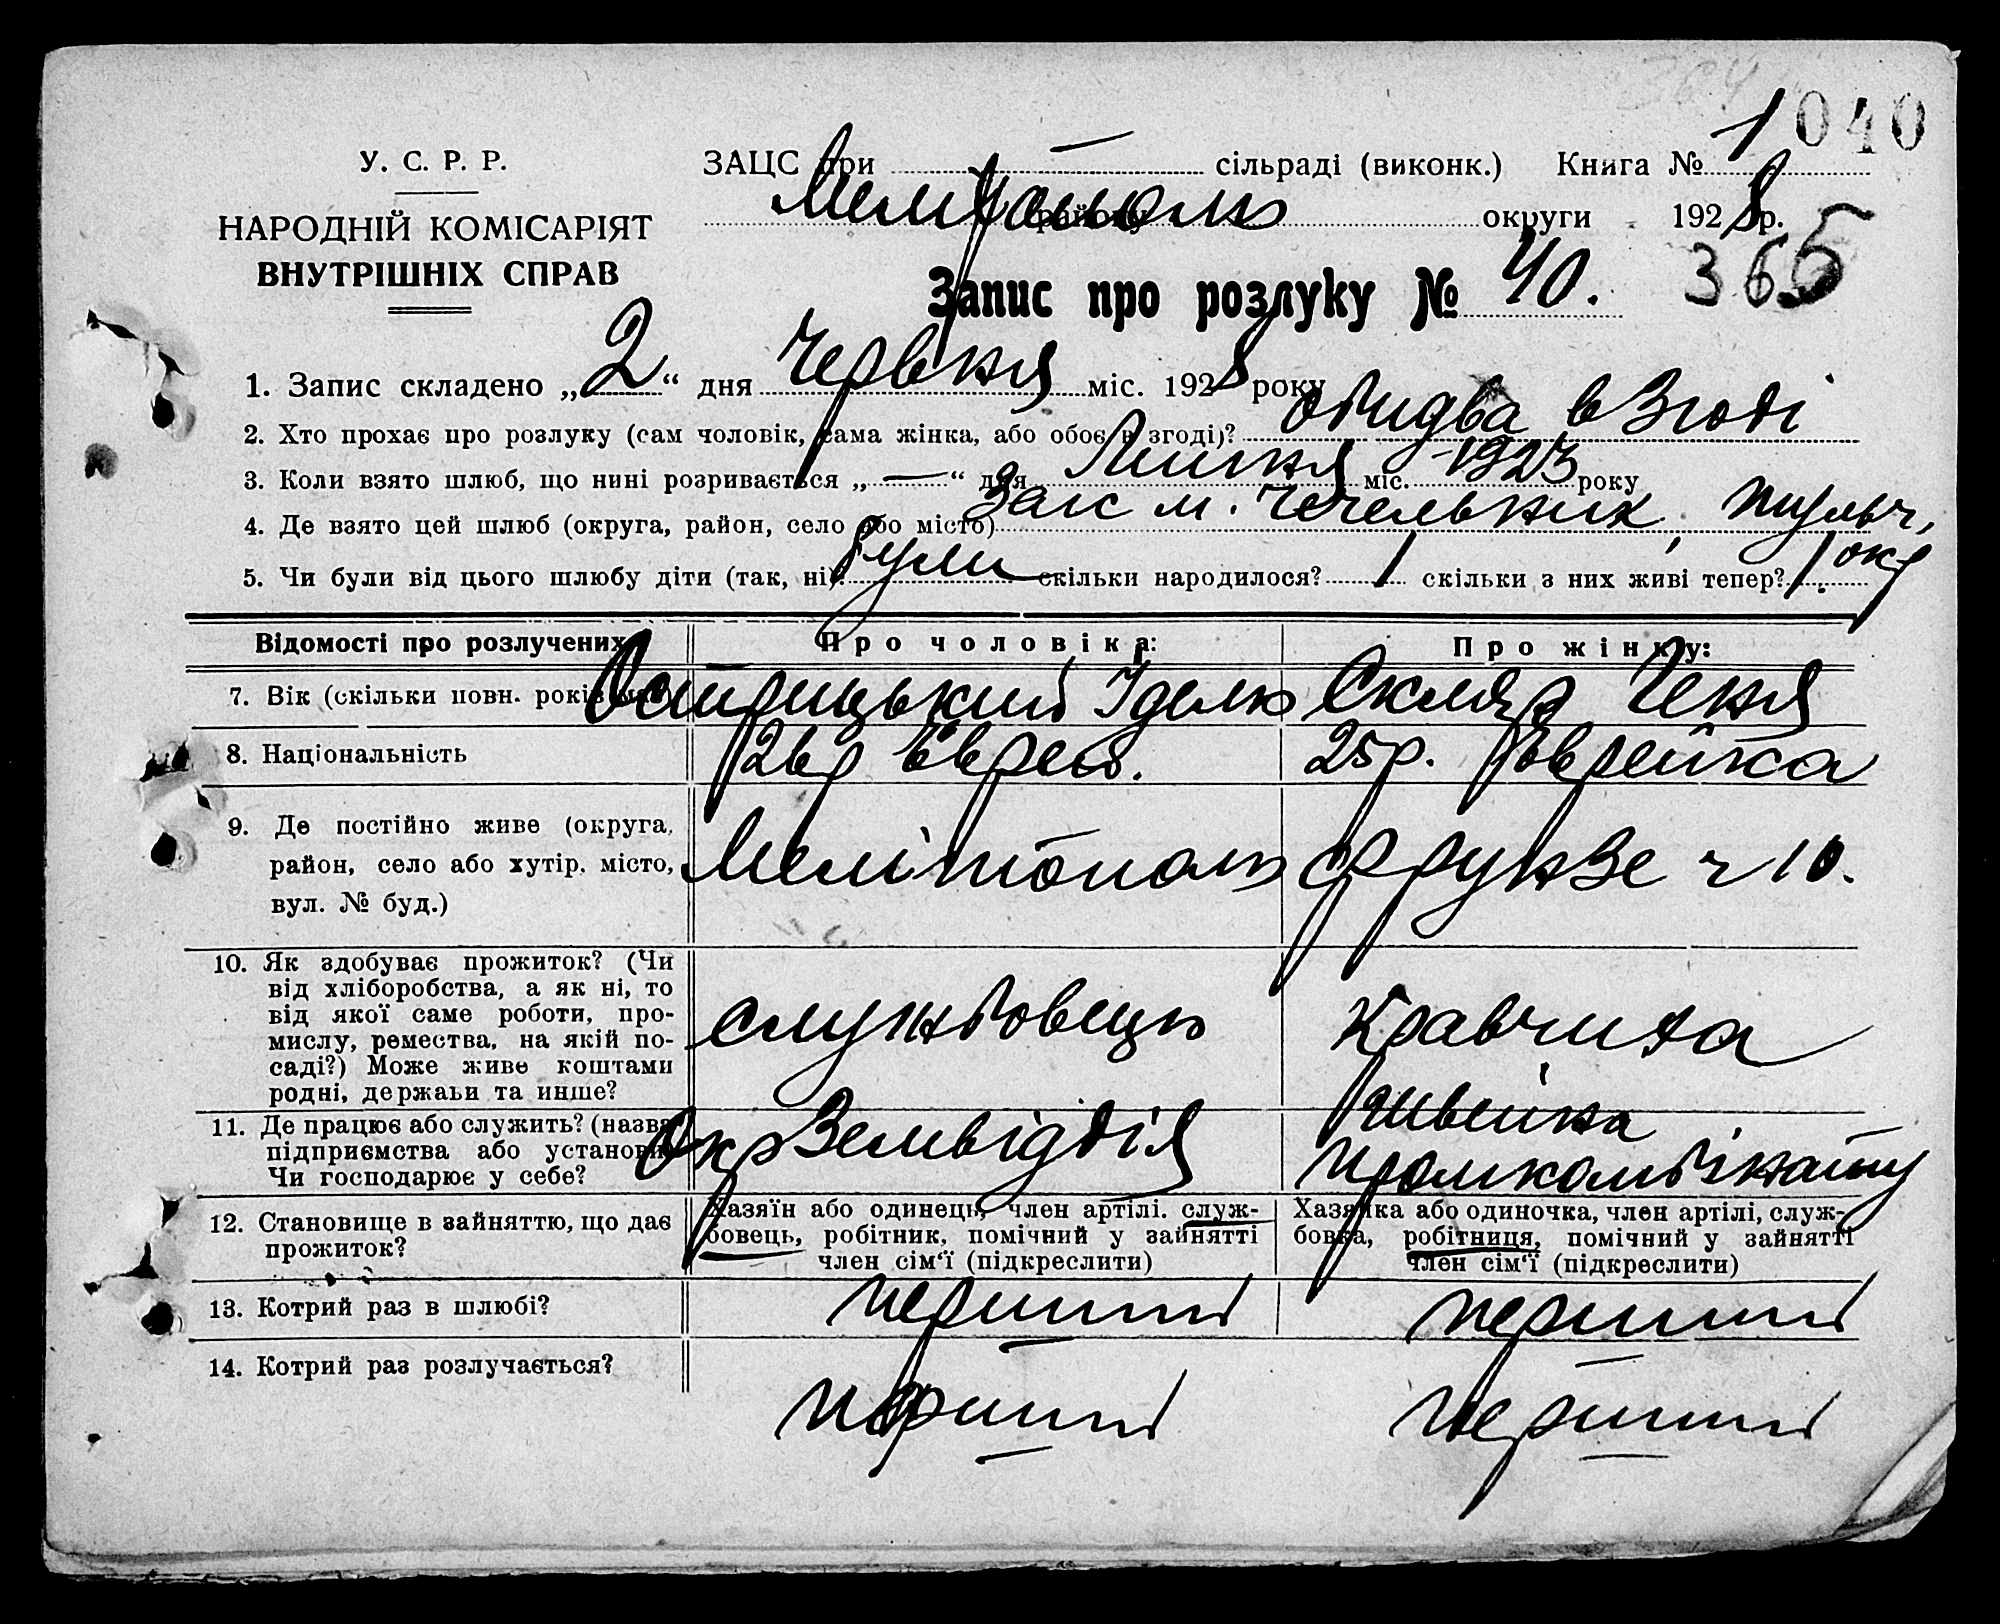 1040
У. С. Р. Р.
НАРОДНІЙ КОМІСАРІЯТ
ВНУТРІШНІХ СПРАВ
ЗАЦС при — сільраді (виконк.) Книга № 1
Мелітополь району округи 1928 р.
365
Запис про розлуку № 40.
1. Запис складено „2“ дня Червня міс. 1928 року
2. Хто прохає про розлуку (сам чоловік, сама жінка, або обоє в згоді)? обидва в згоді
3. Коли взято шлюб, що нині розривається „—“ дня Липня міс. 1923 року
4. Де взято цей шлюб (округа, район, село або місто) Загс м. Чечельник, Тульч. окр
5. Чи були від цього шлюбу діти (так, ні)? були скільки народилося? 1 скільки з них живі тепер? 1.
Відомості про розлучених Про чоловіка: Про жінку:
7. Вік (скільки повн. років Острицький Ідель Скляр Геня
8. Національність 26р Єврей. 25р. Єврейка
9. Де постійно живе (округа, район, село або хутір, місто, вул. № буд.) Мелітополь Фрунзе ч 10.
10. Як здобуває прожиток? (Чи
від хліборобства, а як ні, то
від якої саме роботи, про-
мислу, ремества, на якій по-
саді?) Може живе коштами
родні, держави та инше?
службовець
Кравчиха
швейка
11. Де працює або служить? (назва
підприємства або установи
Чи господарює у себе?
Окрземвідділ
промкомбінату
12. Становище в зайняттю, що дає
прожиток?
Хазяїн або одинець, член артілі. служ-
бовець, робітник, помічний у зайнятті
член сім'ї (підкреслити)
Хазяйка або одиночка, член артілі, служ-
бовка, робітниця, помічний у зайнятті
член сім'ї (підкреслити)
13. Котрий раз в шлюбі? перший перший
14. Котрий раз розлучається? перший перший